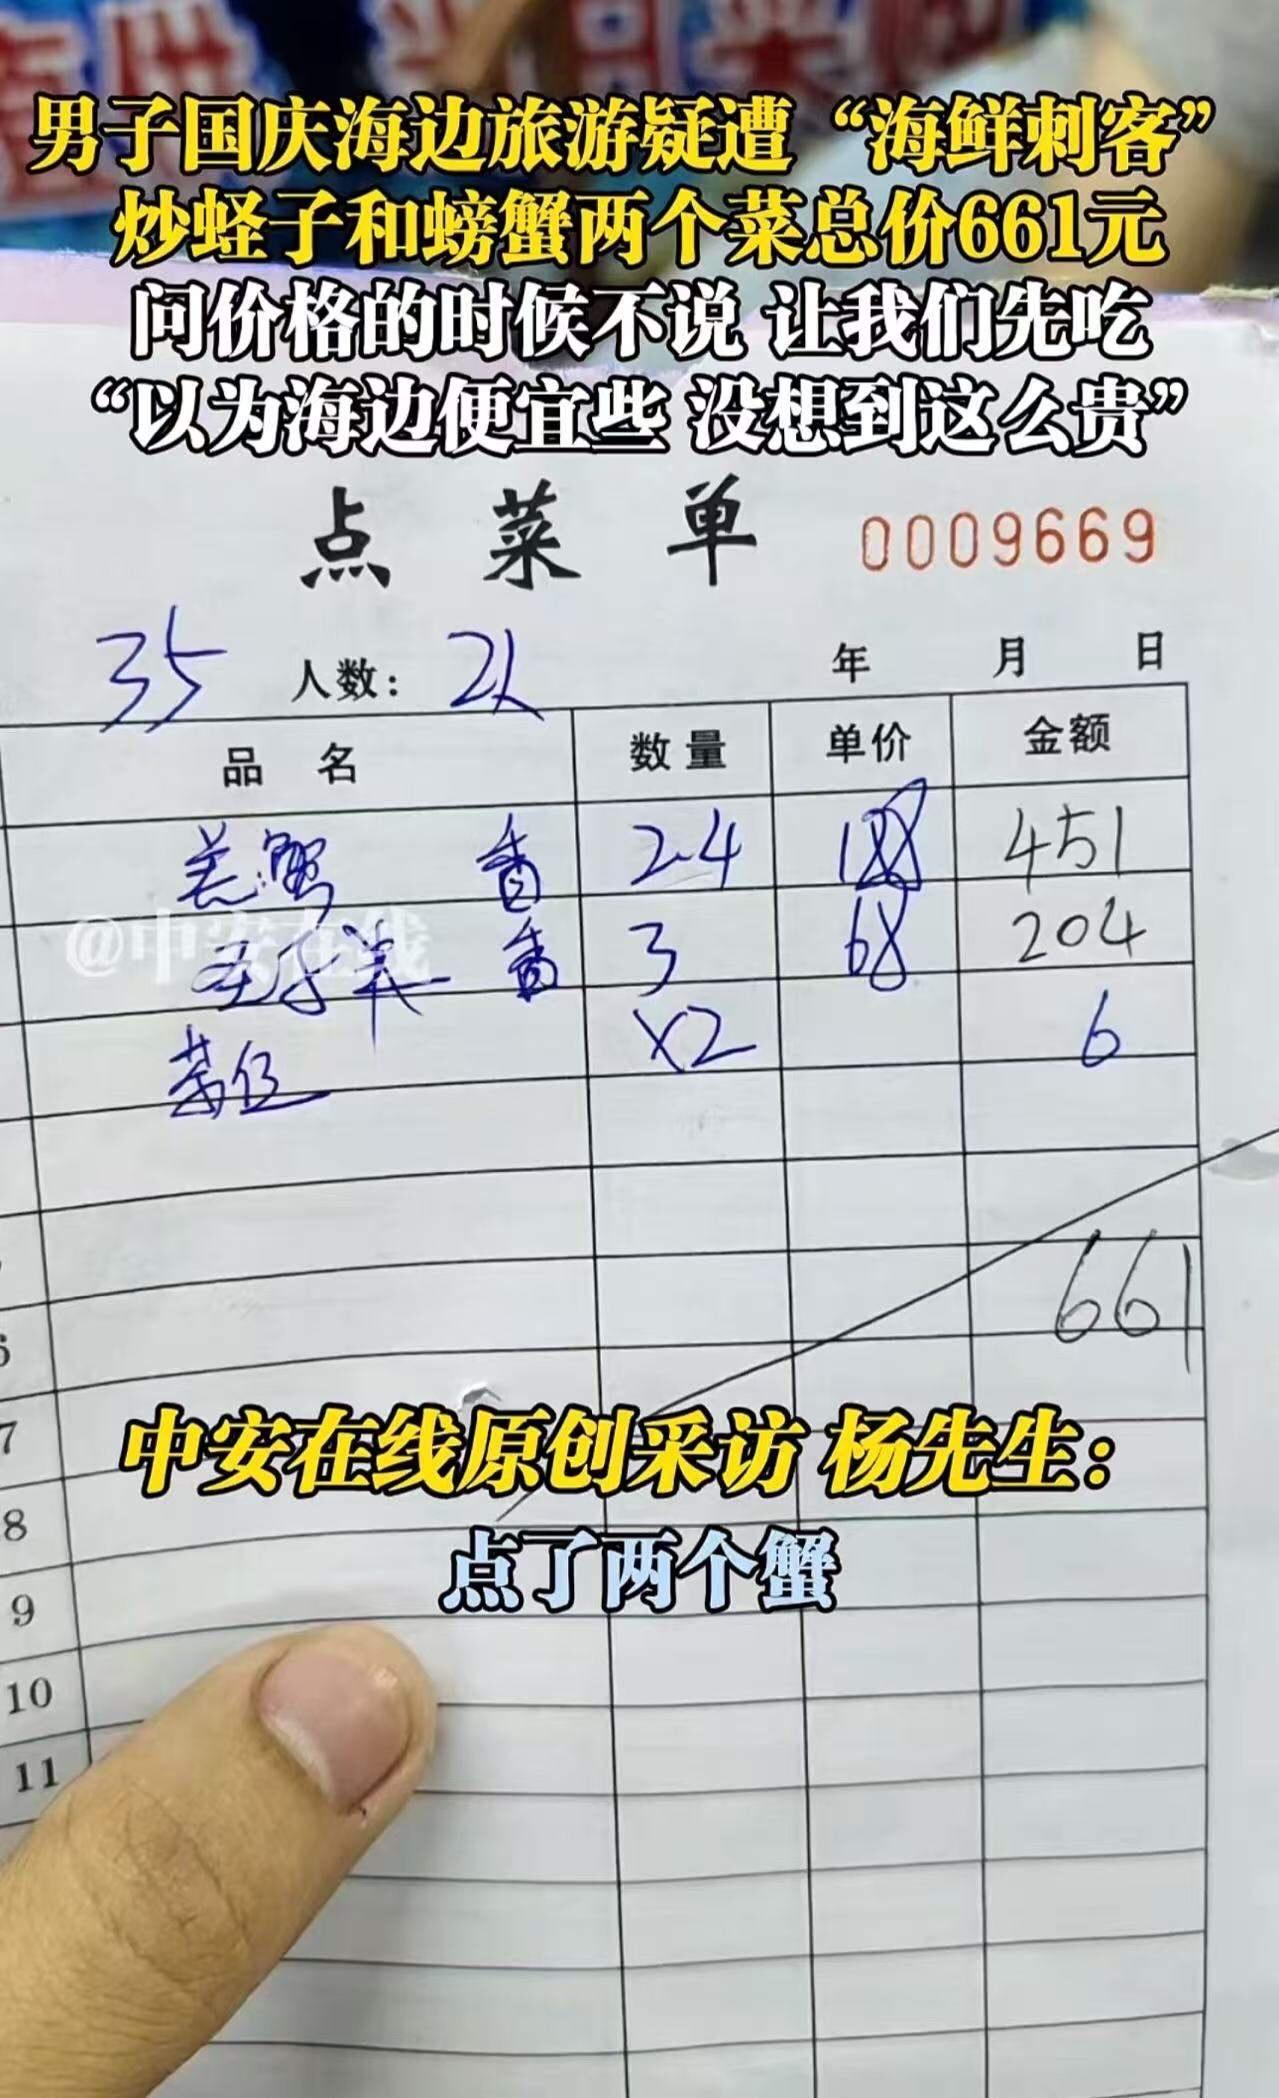 男子国庆海边旅游疑遭“海鲜刺客”
炒蛏子和螃蟹两个菜总价661元
问价格的时候不说 让我们先吃
“以为海边便宜些 没想到这么贵”
点 菜 单 0009669
35 人数： 2人 年 月 日
品 名 数量 单价 金额
蟹 2.4 188 451
@中安在线
3 68 204
茶位 X2 6
661
6
7
中安在线原创采访 杨先生：
8
点了两个蟹
9
10
11